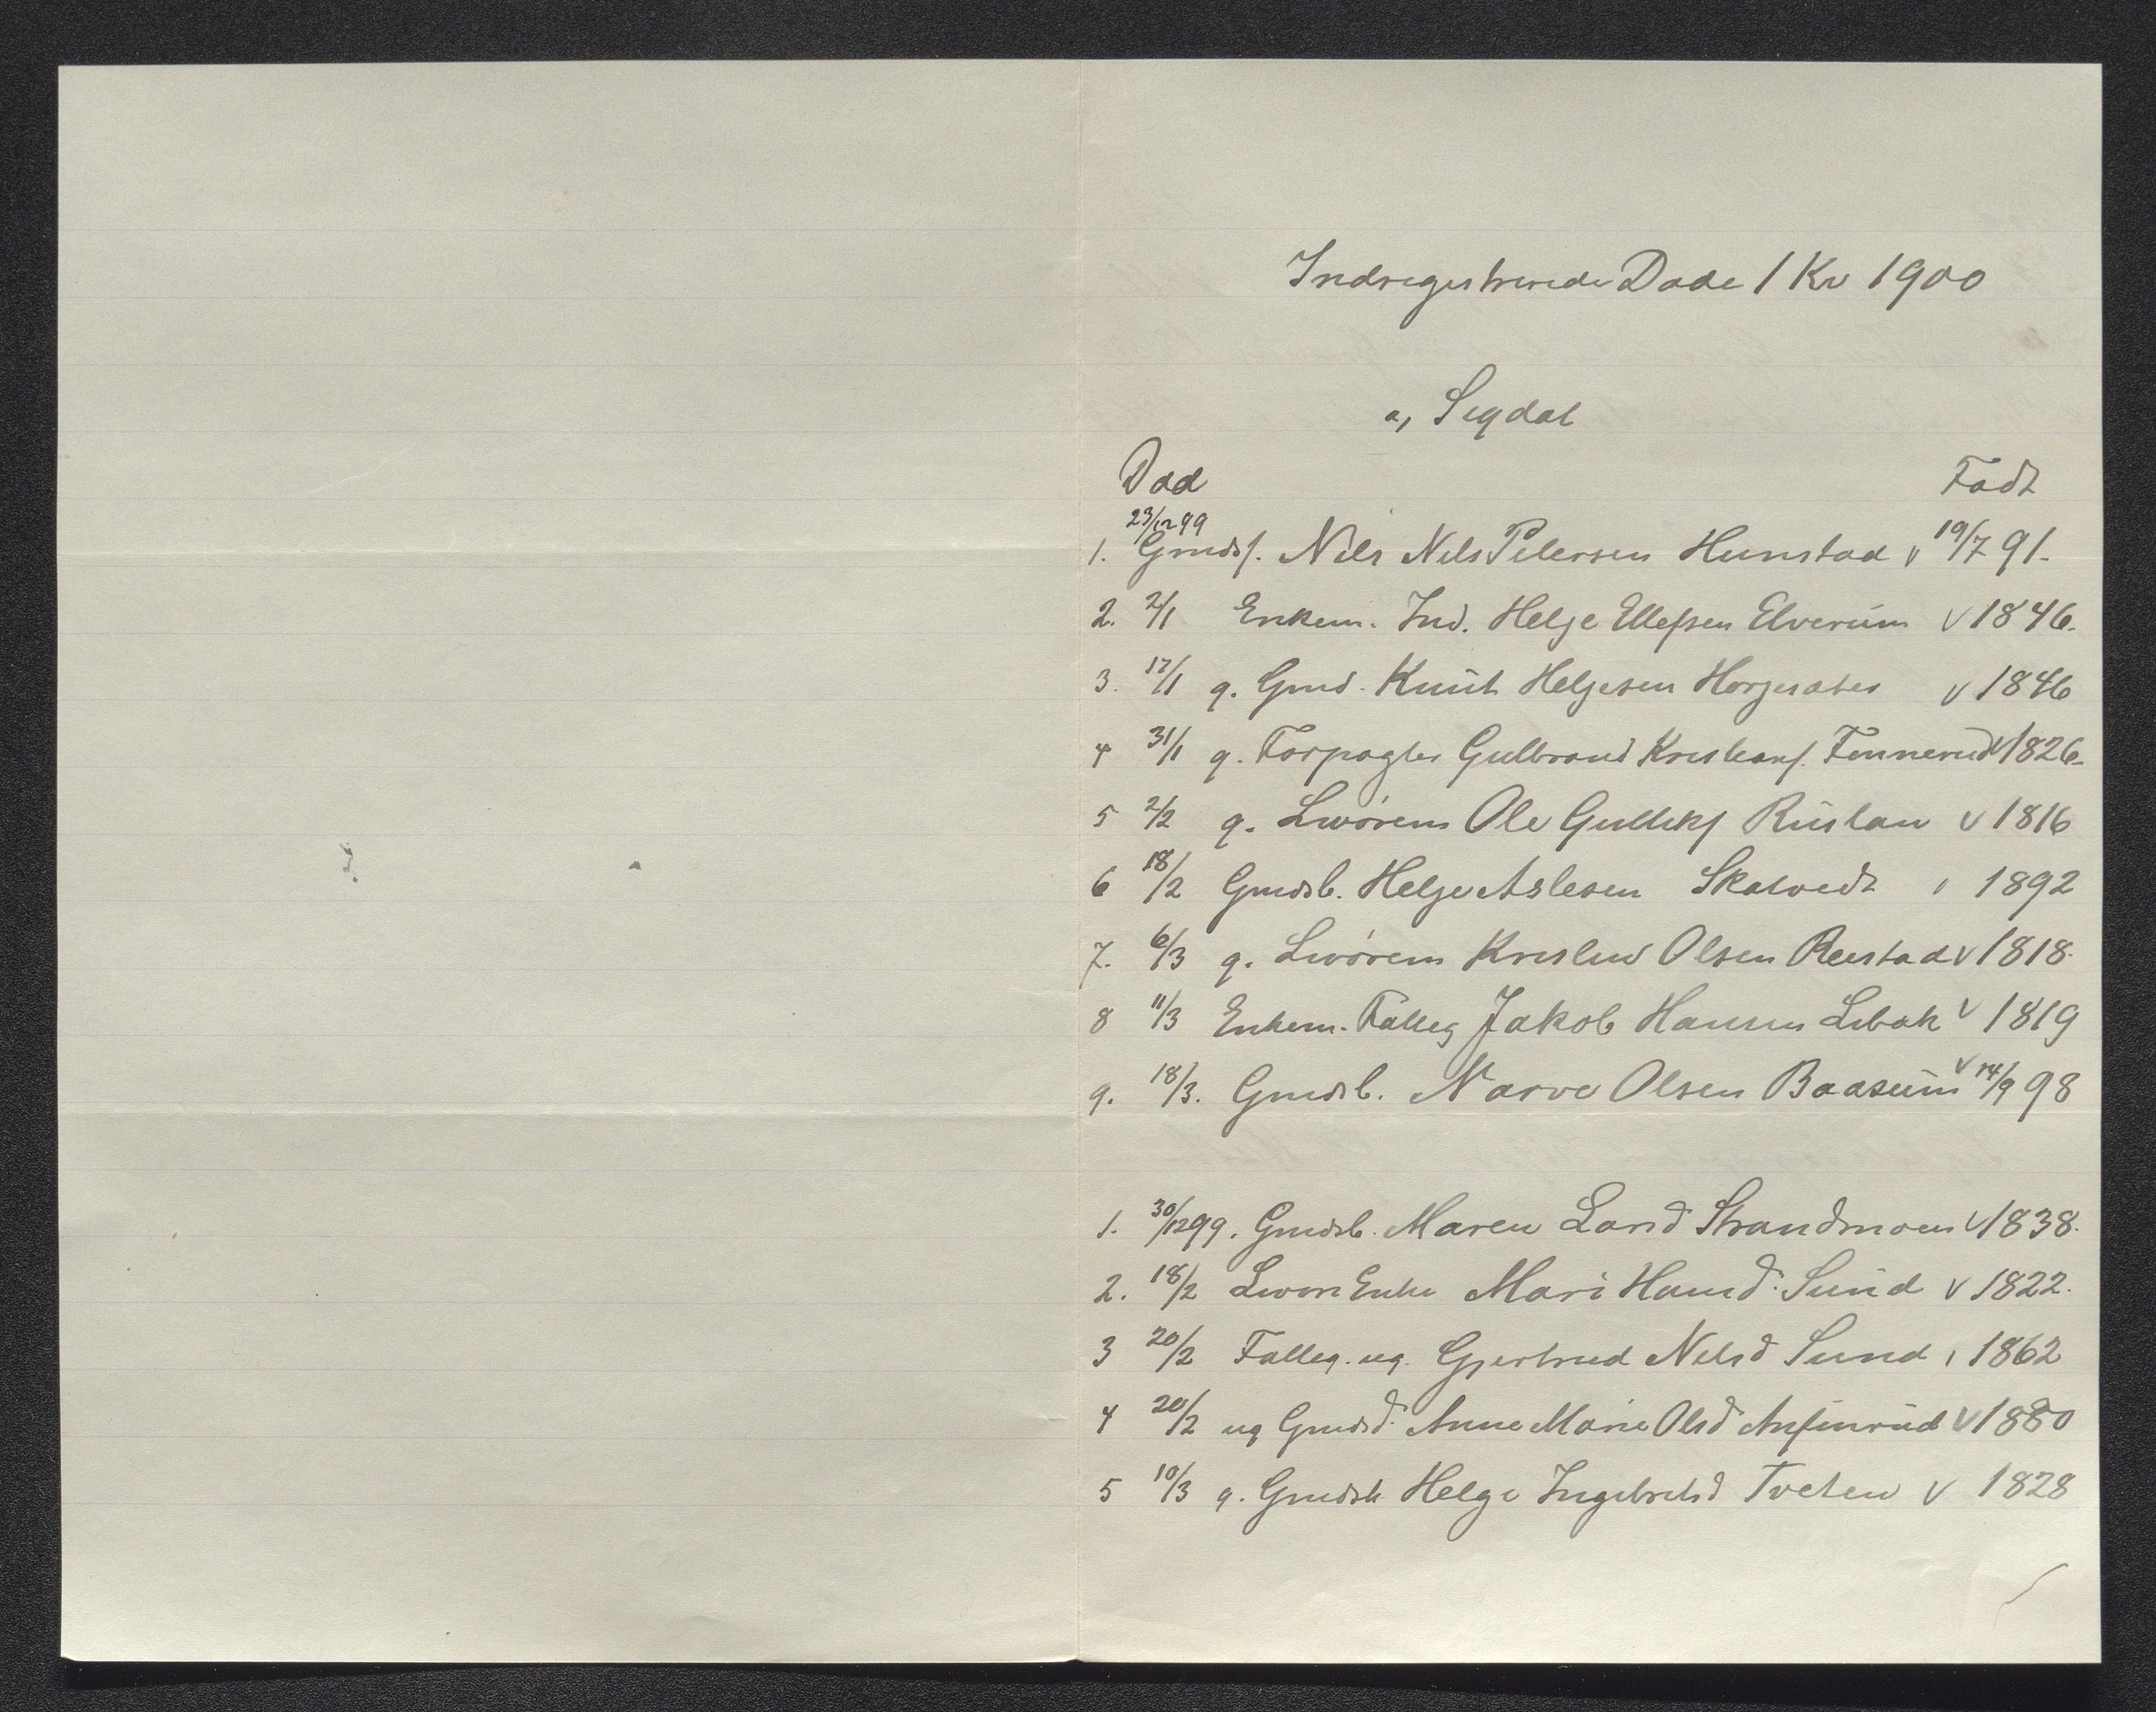 Indregistrerede Døde 1 Kv 1900
a, Sigdal
Død Født
23/12 99
1. Grndsf. Nils Nils Petersen Hunstad v 19/7 91.
2. 2/1 Enkem. Ind. Helge Ellefsen Elverum v 1846.
3. 17/1 g. Grnd. Knut Helgesen Horgesæter v 1846
4 31/1 g. Forpagter Gulbrand Kristians. Finnerud v 1826.
5 2/2 g. Livørem Ole Gulliks Rustan v 1816
6 18/2 Grndsb. Helge Aslesen Skalvedt v 1892
7. 6/3 g. Livørem Kristen Olsen Rustad v 1818.
8 11/3 Enkem. Fatteg Jakob Hansen Libak v 1819
9. 18/3. Grndsb. Narve Olsen Baasum v 14/9 98
1. 30/12 99. Grndsb. Maren Larsd Strandmoen v 1838.
2. 18/2 Livøre Enke Mari Hansd. Sund v 1822.
3 20/2 Fatteg. ug. Gjertrud Nilsd Sund v 1862
4 20/2 ug Grndsd. Anne Marie Olsd Anfinrud v 1880
5 10/3 g. Grndsk Helge Ingebretsd Tveten v 1828